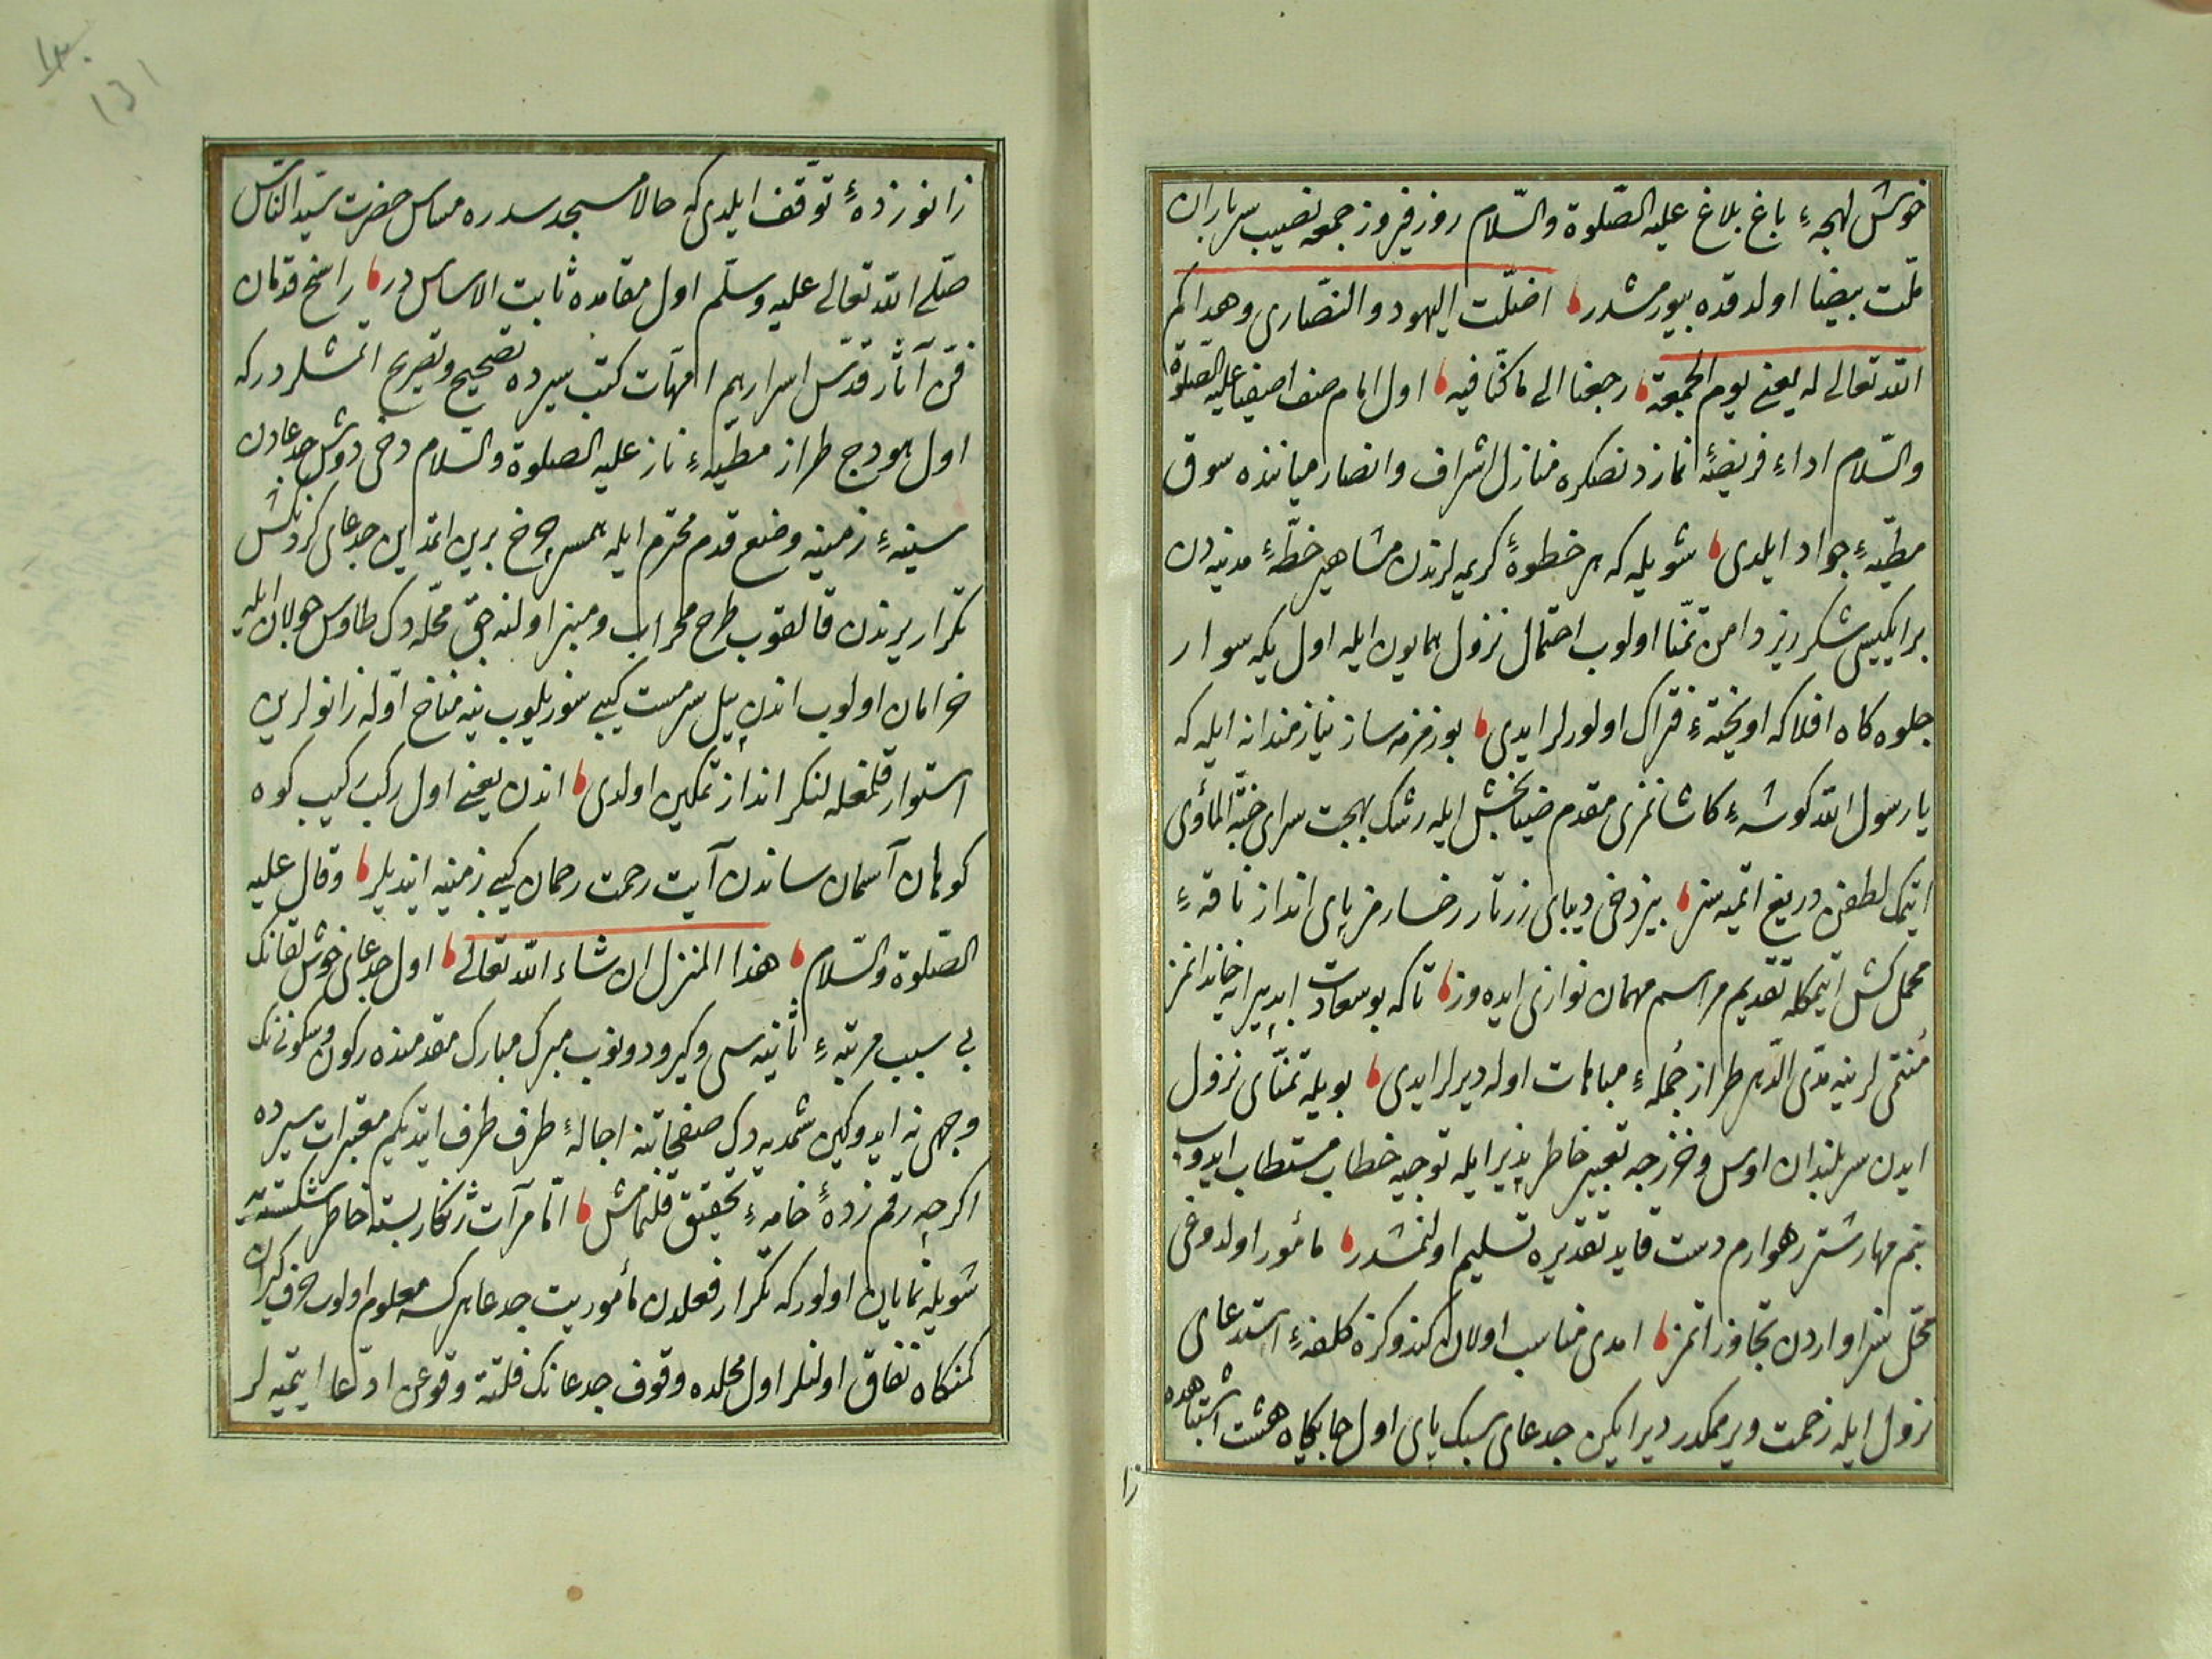 خوش لهجهٔ باغ بلاغ عليه الصّلوة والسّلام روز فيروز جمعه نصيب سربازان
ملّت بيضا اولدقده بيورمشدر اضلّت اليهود والنّصارى وهداكم
الله تعالى له يعنى يوم الجمعة رجعنا الى ما كنّا فيه اول امام صف اصفيا عليه الصّلوة
والسّلام اداء فريضهٔ نمازدنصكره منازل اشراف وانصار مياننده سوق
مطيّهٔ جواد ايلدى شويله كه هر خطوهٔ كريمه لرندن مشاهير خطّهٔ مدينه دن
بر ايكيسى شكرريز دامن تمنّا اولوب احتمال نزول همايون ايله اول يكه سوار
جلوه كاه افلاكه اويخته فتراك اولورلر ايدى بو زمزمه ساز نيازمندانه ايله كه
يا رسول الله كوشهٔ كاشانه‌مزى مقدم ضيابخش ايله رشك بهجت سراى جنّة المأوى
ايتمك لطفن دريغ ايتميه سز بيز دخى ديباى زرتار رخسارمز پاى انداز ناقهٔ
محمل كش ايتمكله تقديم مراسم مهمان نوازى ايده وز تا كه بو سعادت ابد پيرايه خاندانمز
منتمى لرينه مدى الدّهر طراز جملهٔ مباهات اوله ديرلر ايدى بويله تمنّاى نزول
ايدن سربلندان اوس وخزرجه تعبير خاطر پذير ايله توجيه خطاب مستطاب ايدوب
بنم مهار شتر رهوارم دست قايد تقديره تسليم اولنمشدر مأمور اولدوغى
محلّ سزاواردن تجاوز اتمز امدى مناسب اولان كندوكزه كلفهٔ استدعاى
نزول ايله زحمت ويرممكدر ديرايكن جدعاى سبك پاى اول جايكاه هشت اشتباهده
زا
زانوزدهٔ توقّف ايلدى كه حالا مسجد سدره مساس حضرت سيّد النّاس
صلّى الله تعالى عليه وسلّم اول مقامده ثابت الاساس در راسخ قدمان
فنّ آثار قدّس اسرارهم امّهات كتب سيرده تصحيح وتصريح اتمشلردر كه
اول هودج طراز مطيّهٔ ناز عليه الصلوة والسّلام دخى دوش جدعادن
سينهٔ زمينه وضع قدم محترم ايله همسر چرخ برين اتمدين جدعاى كردنكش
تكرار يرندن قالقوب طرح محراب ومنبر اولنه جق محلّه دك طاوس جولان ايله
خرامان اولوب اندن پيل سرمست كيبى سوريلوب ينه مناخ اوّله زانولرين
استوار قلمغله لنكر انداز تمكين اولدى اندن يعنى اول ركب كيب كوه
كوهان آسمان ساندن آيت رحمت رحمان كيبى زمينه اينديلر وقال عليه
الصّلوة والسّلام هذا المنزل ان شاء الله تعالى اول جدعاى خوش لقانك
بى سبب مرتبهٔ ثانيه سى وكيرو دونوب مبرك مبارك مقدمنده ركون وسكونتنك
وجهى نه ايدوكين شمديه دك صفحاتنه اجالهٔ طرف طرف ايتديكم معتبرات سيرده
اكرچه رقم زدهٔ خامهٔ تحقيق قلنمامش امّا مرآت ژنكار بسته خاطر شكسته يه
شويله نمايان اولور كه تكرار فعلدن مأموريت جدعا هركسه معلوم اولوب حرف كيران
كمنكاه نفاق اولنلر اول محلده وقوف جدعانك فلتة وقوعن ادّعا ايتميه لر
١٣٠
131